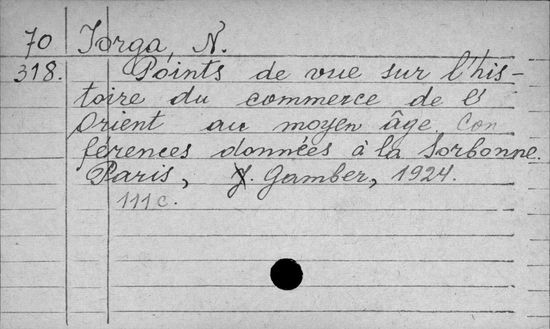 70 Iorga, N.
318. Points de vue sur l'his-
toire du commerce de l'
Orient au moyen âge Con
férences données à la Sorbonne.
Paris, J. Gamber, 1924.
111 c.